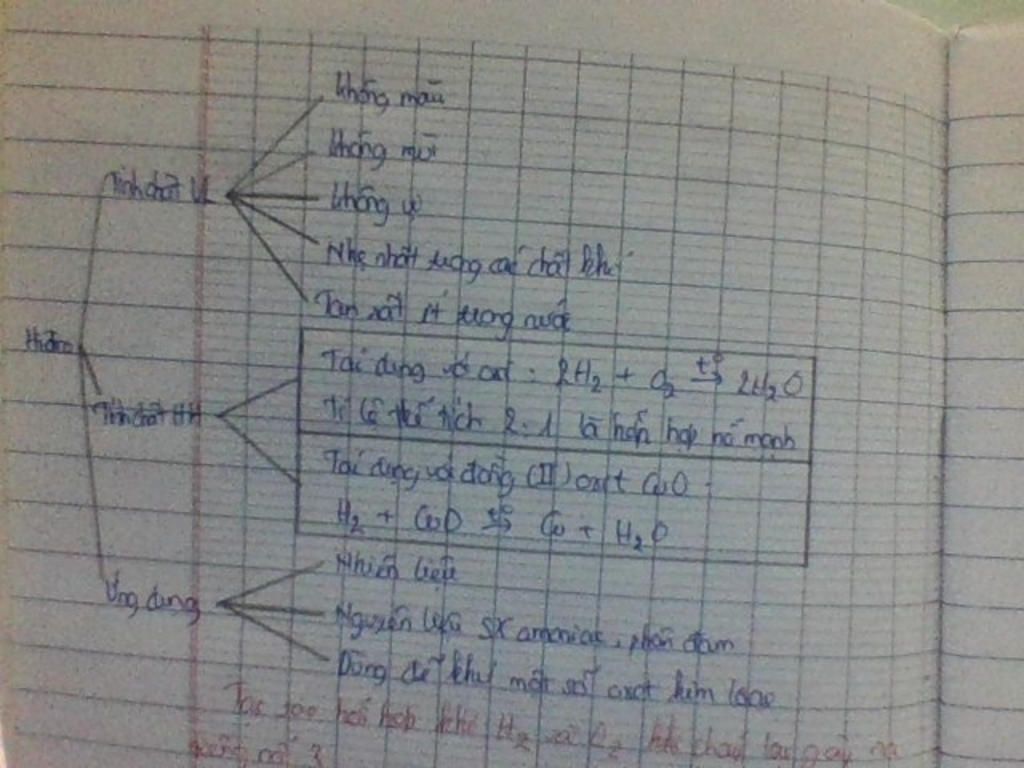 không màu
không mùi
Tính chất VL
không vị
Nhẹ nhất trong các chất khí
Tan rất ít trong nước
Hiđro
Tác dụng với oxi : 2H₂ + O₂ t° → 2H₂O
Tỉ lệ thể tích 2:1 là hỗn hợp nổ mạnh
Tính chất HH
Tác dụng với đồng (II) oxit CuO
H₂ + CuO t° → Cu + H₂O
Nhiên liệu
Ứng dụng
Nguyên liệu SX amoniac, phân đạm
Dùng để khử một số oxit kim loại
Tại sao hỗn hợp khí H₂ và O₂ khi cháy lại gây ra
tiếng nổ ?